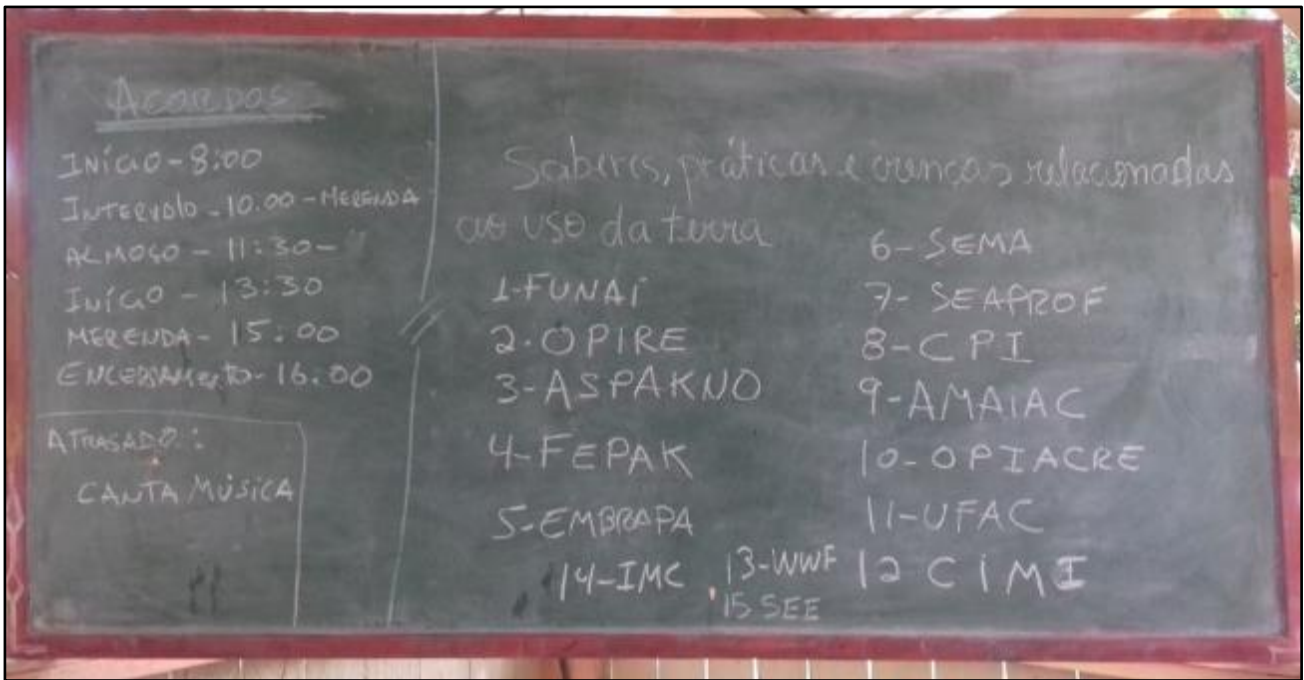 ACORDOS
INÍCIO - 8:00
INTERVALO - 10.00 - MERENDA
ALMOÇO - 11:30 -
INÍCIO - 13:30
MERENDA - 15:00
ENCERRAMENTO - 16.00
ATRASADO:
CANTA MÚSICA
Saberes, práticas e crenças relacionadas
ao uso da terra
1-FUNAI
2-OPIRE
3-ASPAKNO
4-FEPAK
5-EMBRAPA
6-SEMA
7-SEAPROF
8-CPI
9-AMAIAC
10-OPIACRE
11-UFAC
12 CIMI
13-WWF
14-IMC
15 SEE